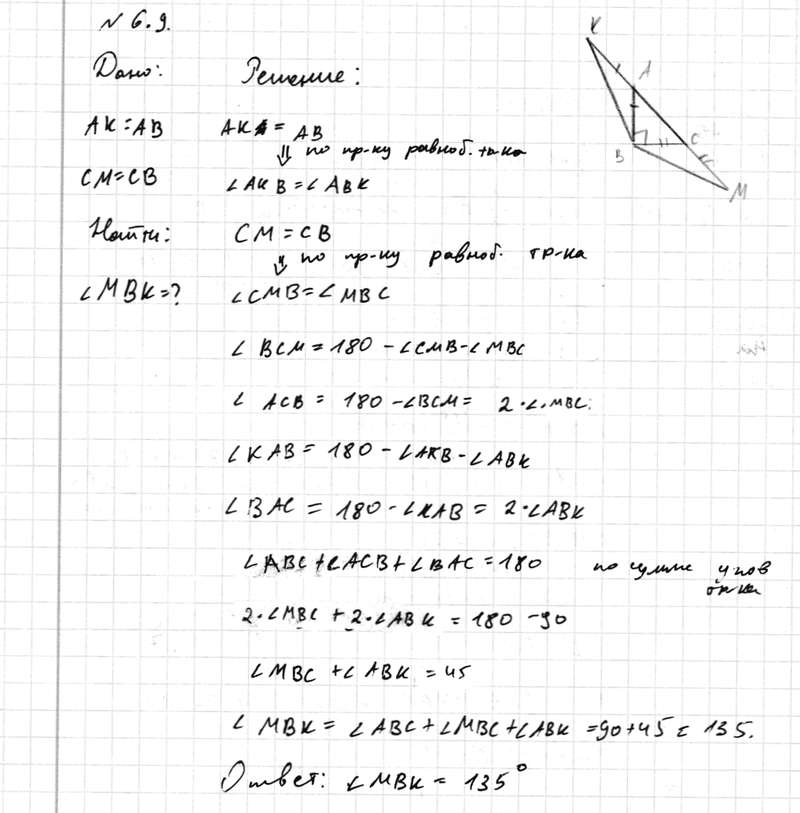 N 6.9.
Дано:
Решение:
AK=AB
AK = AB
⇓ по пр-ку равноб. тр-ка
CM=CB
∠AKB=∠ABK
Найти:
CM=CB
⇓ по пр-ку равноб. тр-ка
∠MBK=?
∠CMB=∠MBC
∠BCM=180-∠CMB-∠MBC
∠ACB = 180-∠BCM= 2·∠MBC.
∠KAB= 180-∠AKB-∠ABK
∠BAC = 180-∠KAB= 2·∠ABK
∠ABC+∠ACB+∠BAC=180 по сумме углов
тр-ка
2·∠MBC + 2·∠ABK = 180-90
∠MBC +∠ABK =45
∠MBK= ∠ABC+∠MBC+∠ABK =90+45= 135.
Ответ: ∠MBK= 135°
K
A
B
C
M